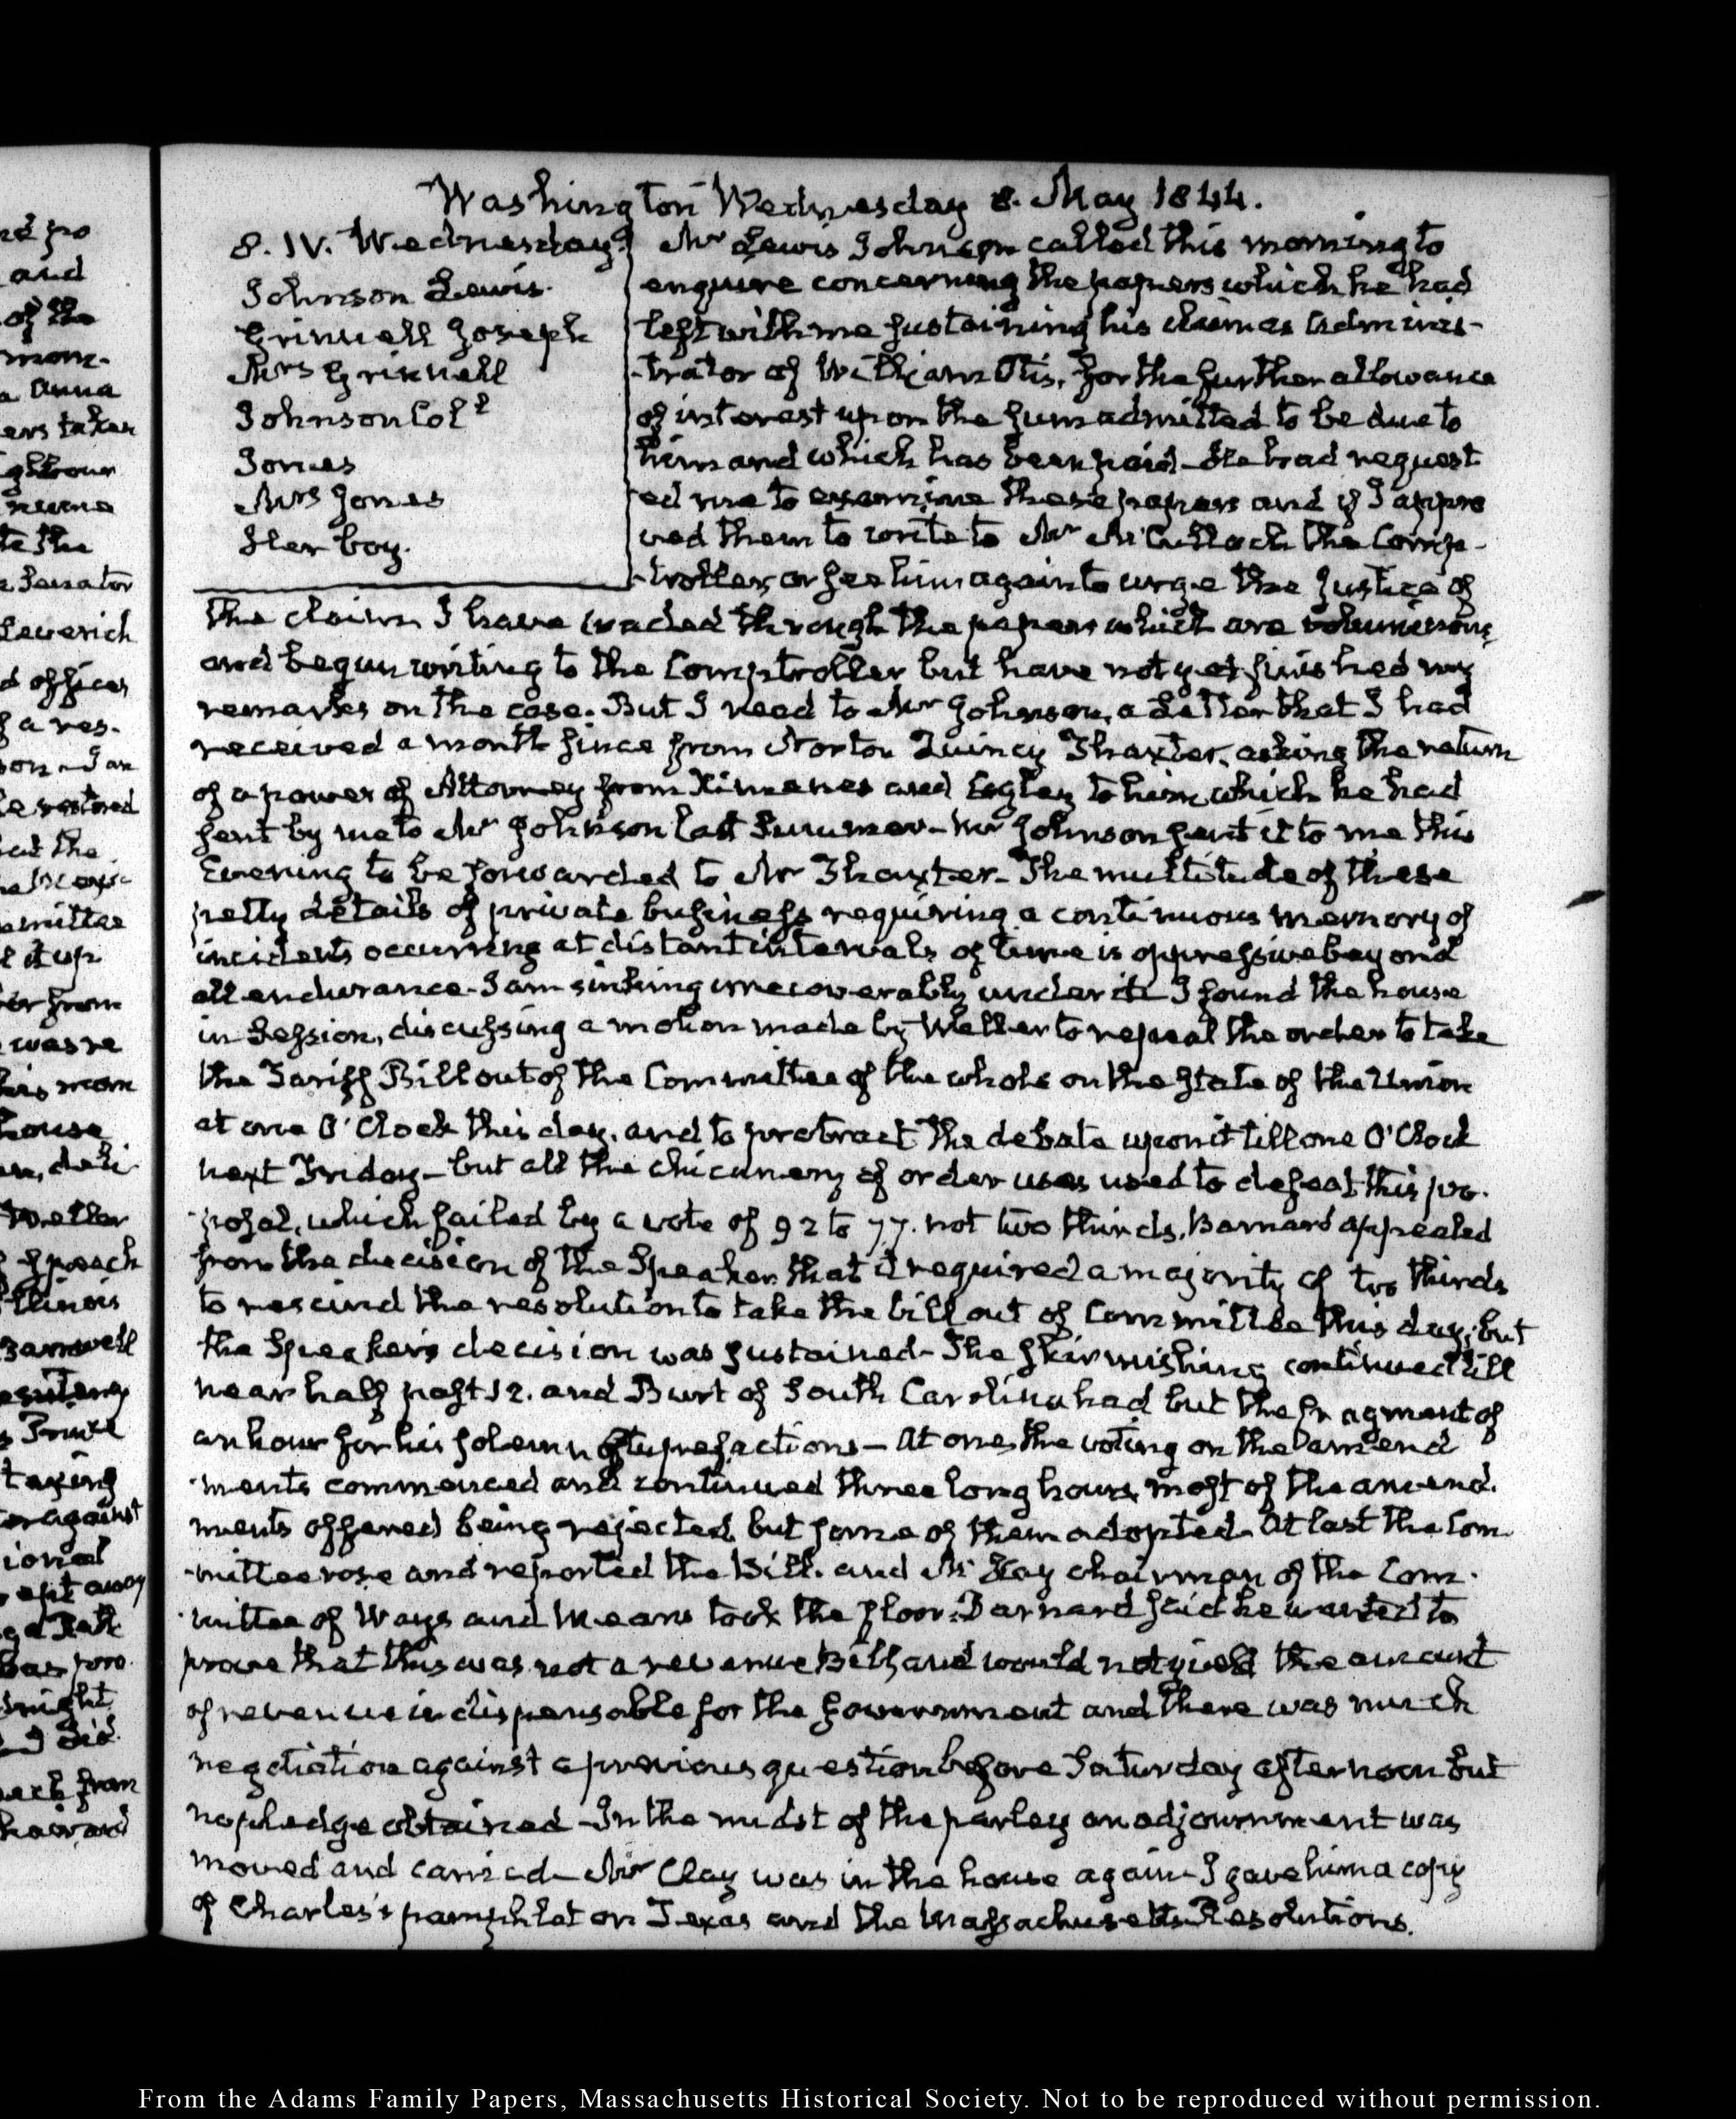 Washington Wednesday 8. May 1844.
8. IV. Wednesday.
Johnson Lewis.
Grinnell Joseph
Mrs Grinnell
Johnson Colº
Jones
Mrs Jones
Her boy.
Mr Lewis Johnson called this morning to
enquire concerning the papers which he had
left with me sustaining his claim as Adminis-
-trator of William Otis, for the further allowance
of interest upon the sum admitted to be due to
him and which has been paid - He had request
ed me to examine these papers and if I appro
ved them to write to Mr McCulloch the Comp-
-troller, or see him again to urge the justice of
the claim. I have waded through the papers which are voluminous,
and begun writing to the Comptroller but have not yet finished my
remarks on the case. But I read to Mr Johnson, a Letter that I had
received a month since from Norton Quincy Thaxter, asking the return
of a power of Attorney from Ximenes and to him which he had
sent by me to Mr Johnson last Summer - Mr Johnson sent it to me this
Evening to be forwarded to Mr Thaxter - The multitude of these
petty details of private business requiring a continuous memory of
incidents occurring at distant intervals of time is oppressive beyond
all endurance - I am sinking irrecoverably under it - I found the house
in Session, discussing a motion made by Weller to repeal the order to take
the Tariff Bill out of the Committee of the whole on the State of the Union
at one O'Clock this day, and to protract the debate upon it till one O'Clock
next Friday - but all the chicanery of order was used to defeat this pro-
-posal, which failed by a vote of 92 to 77. not two thirds. Barnard appealed
from the decision of the Speaker that it required a majority of two thirds
to rescind the resolution to take the bill out of Committee this day; but
the Speaker's decision was sustained - The skirmishing continued till
near half past 12. and Burt of South Carolina had but the fragment of
an hour for his solemn stupefactions - At one, the voting on the amend
-ments commenced and continued three long hours, most of the amend-
ments offered being rejected but some of them adopted. At last the Com-
-mittee rose and reported the Bill. and McKay chairman of the Com-
-mittee of Ways and Means took the floor. Barnard said he wanted to
prove that this was not a revenue Bill, and would not yield the amount
of revenue indispensable for the Government and there was much
negotiation against a previous question before Saturday afternoon but
no pledge obtained - In the midst of the parley an adjournment was
moved and carried - Mr Clay was in the house again - I gave him a copy
of Charles's pamphlet on Texas and the Massachusetts Resolutions.
From the Adams Family Papers, Massachusetts Historical Society. Not to be reproduced without permission.